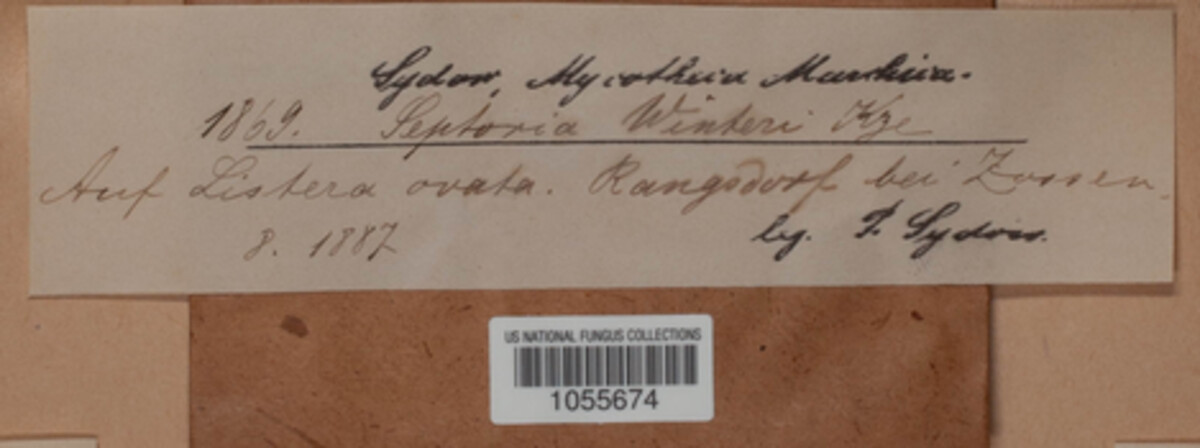 Sydow, Mycotheca Marchica.
1869. Septoria Winteri Kze
Auf Listera ovata. Rangsdorf bei Zossen.
8. 1887
leg. P. Sydow.
US NATIONAL FUNGUS COLLECTIONS
1055674